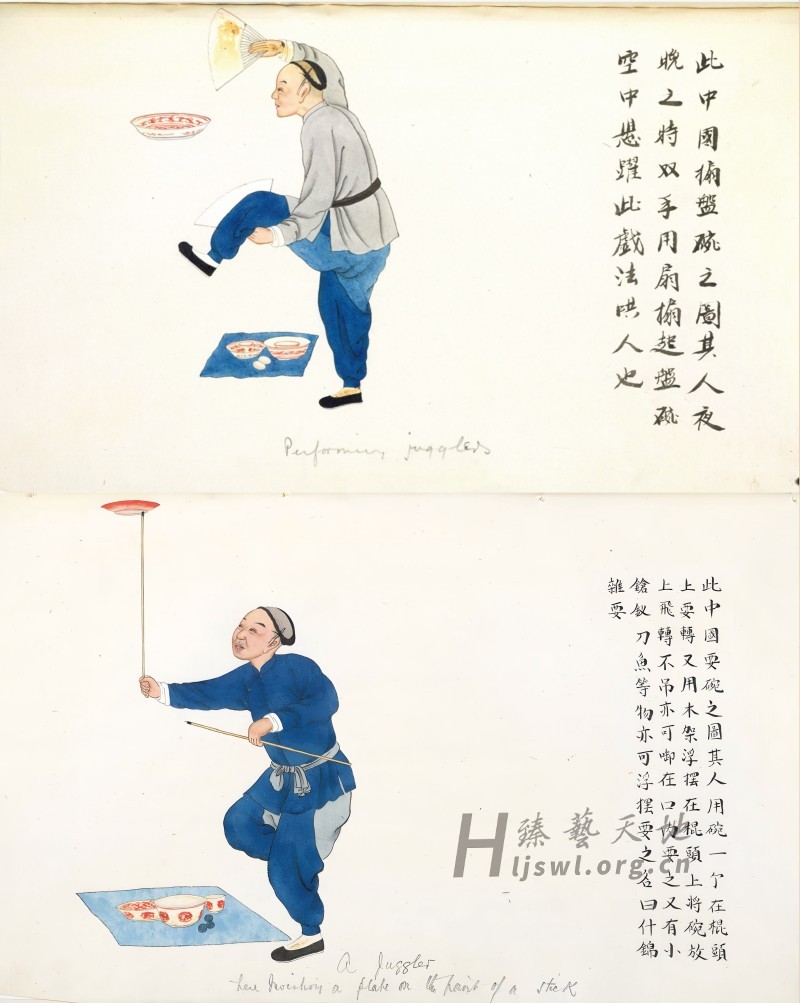 此中國搧盤碗之圖其人夜
晚之時双手用扇搧起盤碗
空中懸躍此戲法哄人也
Performing jugglers
此中國耍碗之圖其人用碗一个在棍頭
上耍轉又用木架浮擺在棍頭上將碗放
上飛轉不吊亦可啣在口內耍之又有小
鎗釵刀魚等物亦可浮擺耍之名曰什錦
雜耍
臻藝天地
Hljswl.org.cn
A Juggler
here a plate on the point of a stick